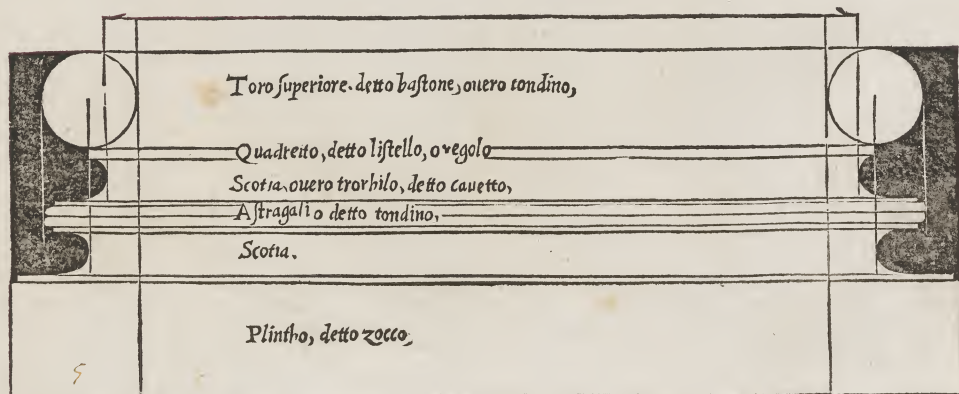 Toro ſuperiore. detto baſtone, ouero tondino,
Quadretto, detto liſtello, o regolo
Scotia, ouero trochilo, detto cauetto,
Aſtragali o detto tondino,
Scotia.
Plintho, detto zocco,